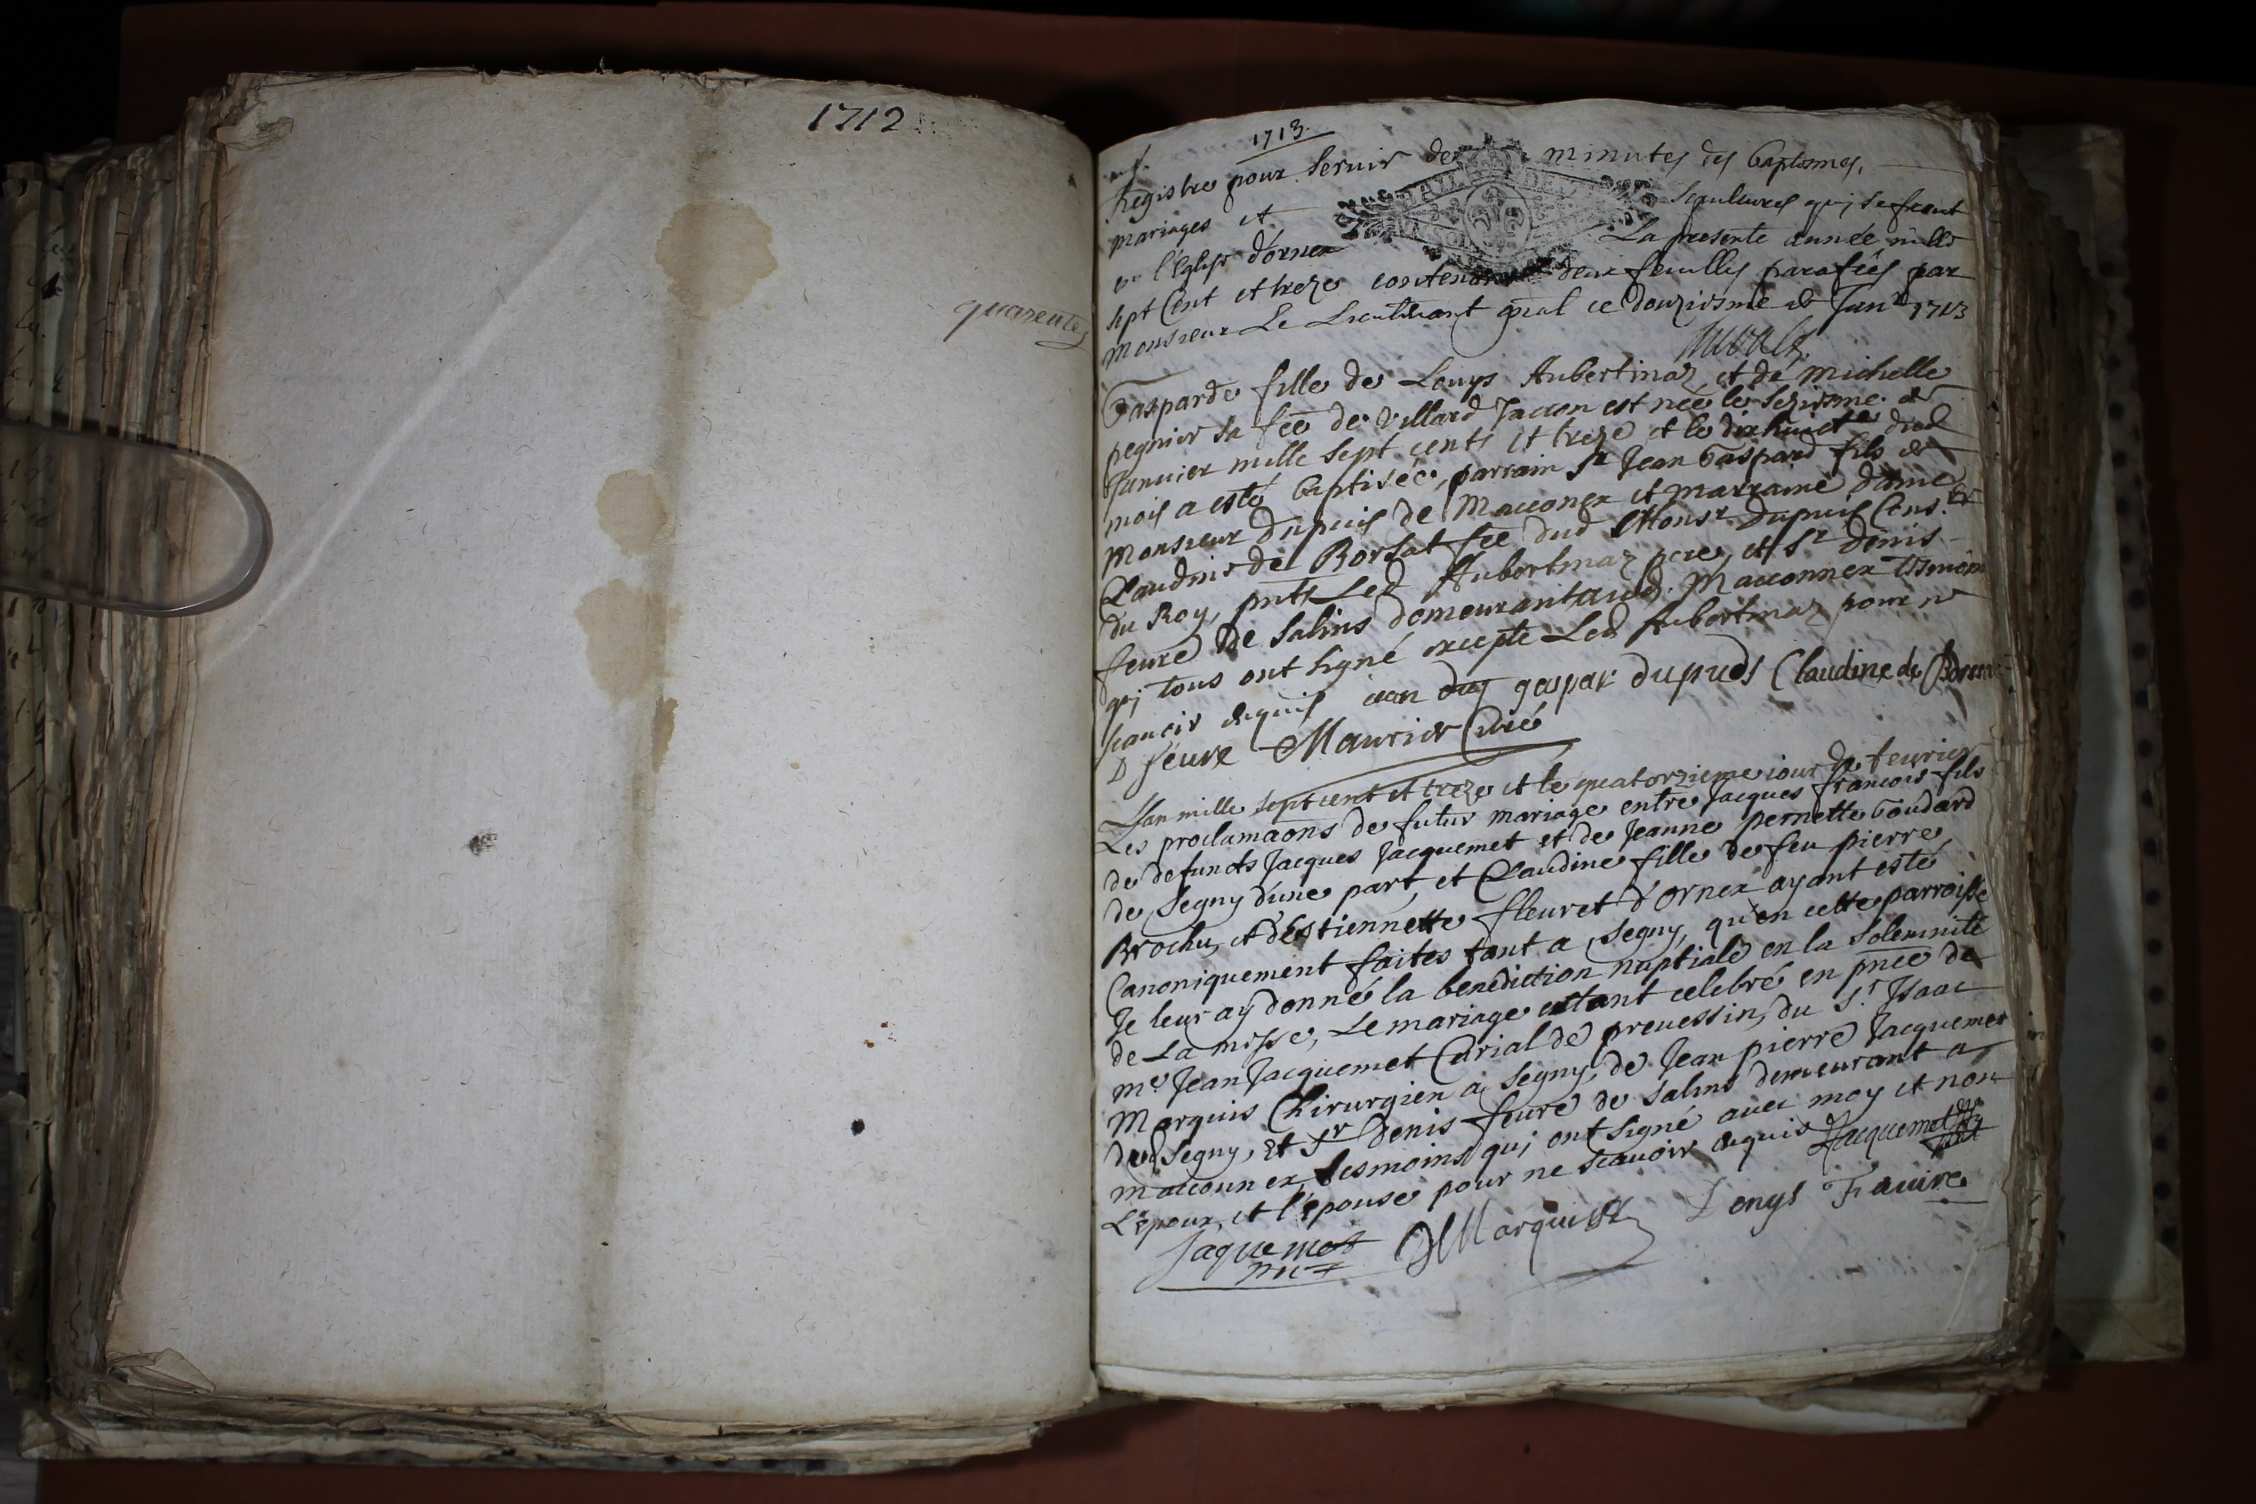 1712
quarente
1713
Registre pour servir de minutes des baptesmes,
mariages et sepultures qui se feront
en l'Eglise d'ornex La presente année mille
sept Cent et treze contenant deux feuilles parafées par
Monsieur Le Lieutenant gnal ce douziesme de Janr 1713
Gasparde fille de Louys Aubertinaz et de Michelle
pegnier sa fee de Villard Taccon est née le seziesme de
Janvier mille sept cents et treze et le dixhuict dud
mois a esté baptisée, parrain Sr Jean Gaspard fils de
Monsieur Dupuis de Macconex et marraine dame
Claudine de Borsat fee dud Monsr Dupuis Cons.er
du Roy, pnts Led Aubertinaz pere, et Sr denis
feure de Salins demeurant aud. Macconnex tesmoins
qui tous ont signé excepté Led Aubertinaz pour ne
scavoir enquis gaspar dupuds Claudine de
D feure Maurier Curé
L'an mille sept cent et treze et le quatorzieme iour de feurier
Les proclamaons de futur mariage entre Jacques francois fils
de defuncts Jacques Jacquemet et de Jeanne pernette Goudard
de Segny d'une part, et Claudine fille de feu pierre
Brochu, et d'Estiennette fleuret d'Ornex ayant esté
Canoniquement faites tant a Segny, qu'en cette parroisse
Je leur ay donné la benediction nuptiale en la solemnité
de La messe, Le mariage estant celebré en pnce de
Me Jean Jacquemet Curial de preuessin, du Sr. Isaac
Marquis Chirurgien a Segny, de Jean pierre Jacquemet
dud Segny, Et Sr Denis feure de Salins demeurant a
macconnex, tesmoins qui ont signé auec moy et non
L'epoux, et l'epouse pour ne scauoir enquis Jacquemet
Jaquemet Marquis Denys Faiure